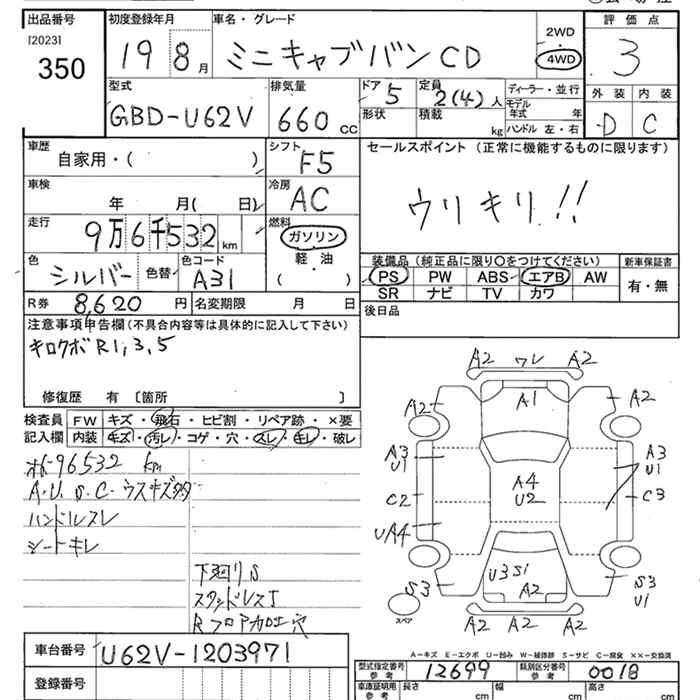 出品番号
[2023]
350
初度登録年月
19 8月
車名・グレード
ミニキャブバン CD
2WD
4WD
評価点
3
型式
GBD-U62V
排気量
660 CC
ドア
5
形状
定員
2(4)人
積載
kg
ディーラー・並行
モデル年式 年
ハンドル 左・右
外装
D
内装
C
車歴
自家用・( )
シフト
F5
車検
年 月( 日)
冷房
AC
走行
9万6千532 km
燃料
ガソリン
軽・油
( )
色
シルバー
色替
色コード
A31
R券
8,620 円
名変期限 月 日
セールスポイント (正常に機能するものに限ります)
ウリキリ!!
装備品 (純正品に限り〇をつけてください)
PS PW ABS エアB AW
SR ナビ TV カワ
新車保証書
有・無
後日品
注意事項申告欄(不具合内容等は具体的に記入して下さい)
キロクボ R1,3,5
修復歴 有 〔箇所 〕
検査員
記入欄
FW キズ・飛石・ヒビ割・リペア跡・×要
内装 キズ・汚レ・コゲ・穴・スレ・キレ・破レ
96532 km
A.U.S.C.ウスキズ多
ハンドルスレ
シートキレ
下廻りS
スタンドレスJ
Rフロア加工穴
A2 ワレ A2
A2 A1 A2
A3
U1
A3
U1
A4
U2
C2
C3
UA4
U3 S1
A2
S3
S3
U1
スペア
A2 A2 A2
車台番号
U62V-1203971
登録番号
A-キズ E-エクボ U-凹み W-補修跡 S-サビ C-腐食 XX-交換済
型式指定番号
参考
12699
類別区分番号
参考
0018
車庫証明用
参考
長さ cm
幅 cm
高さ cm